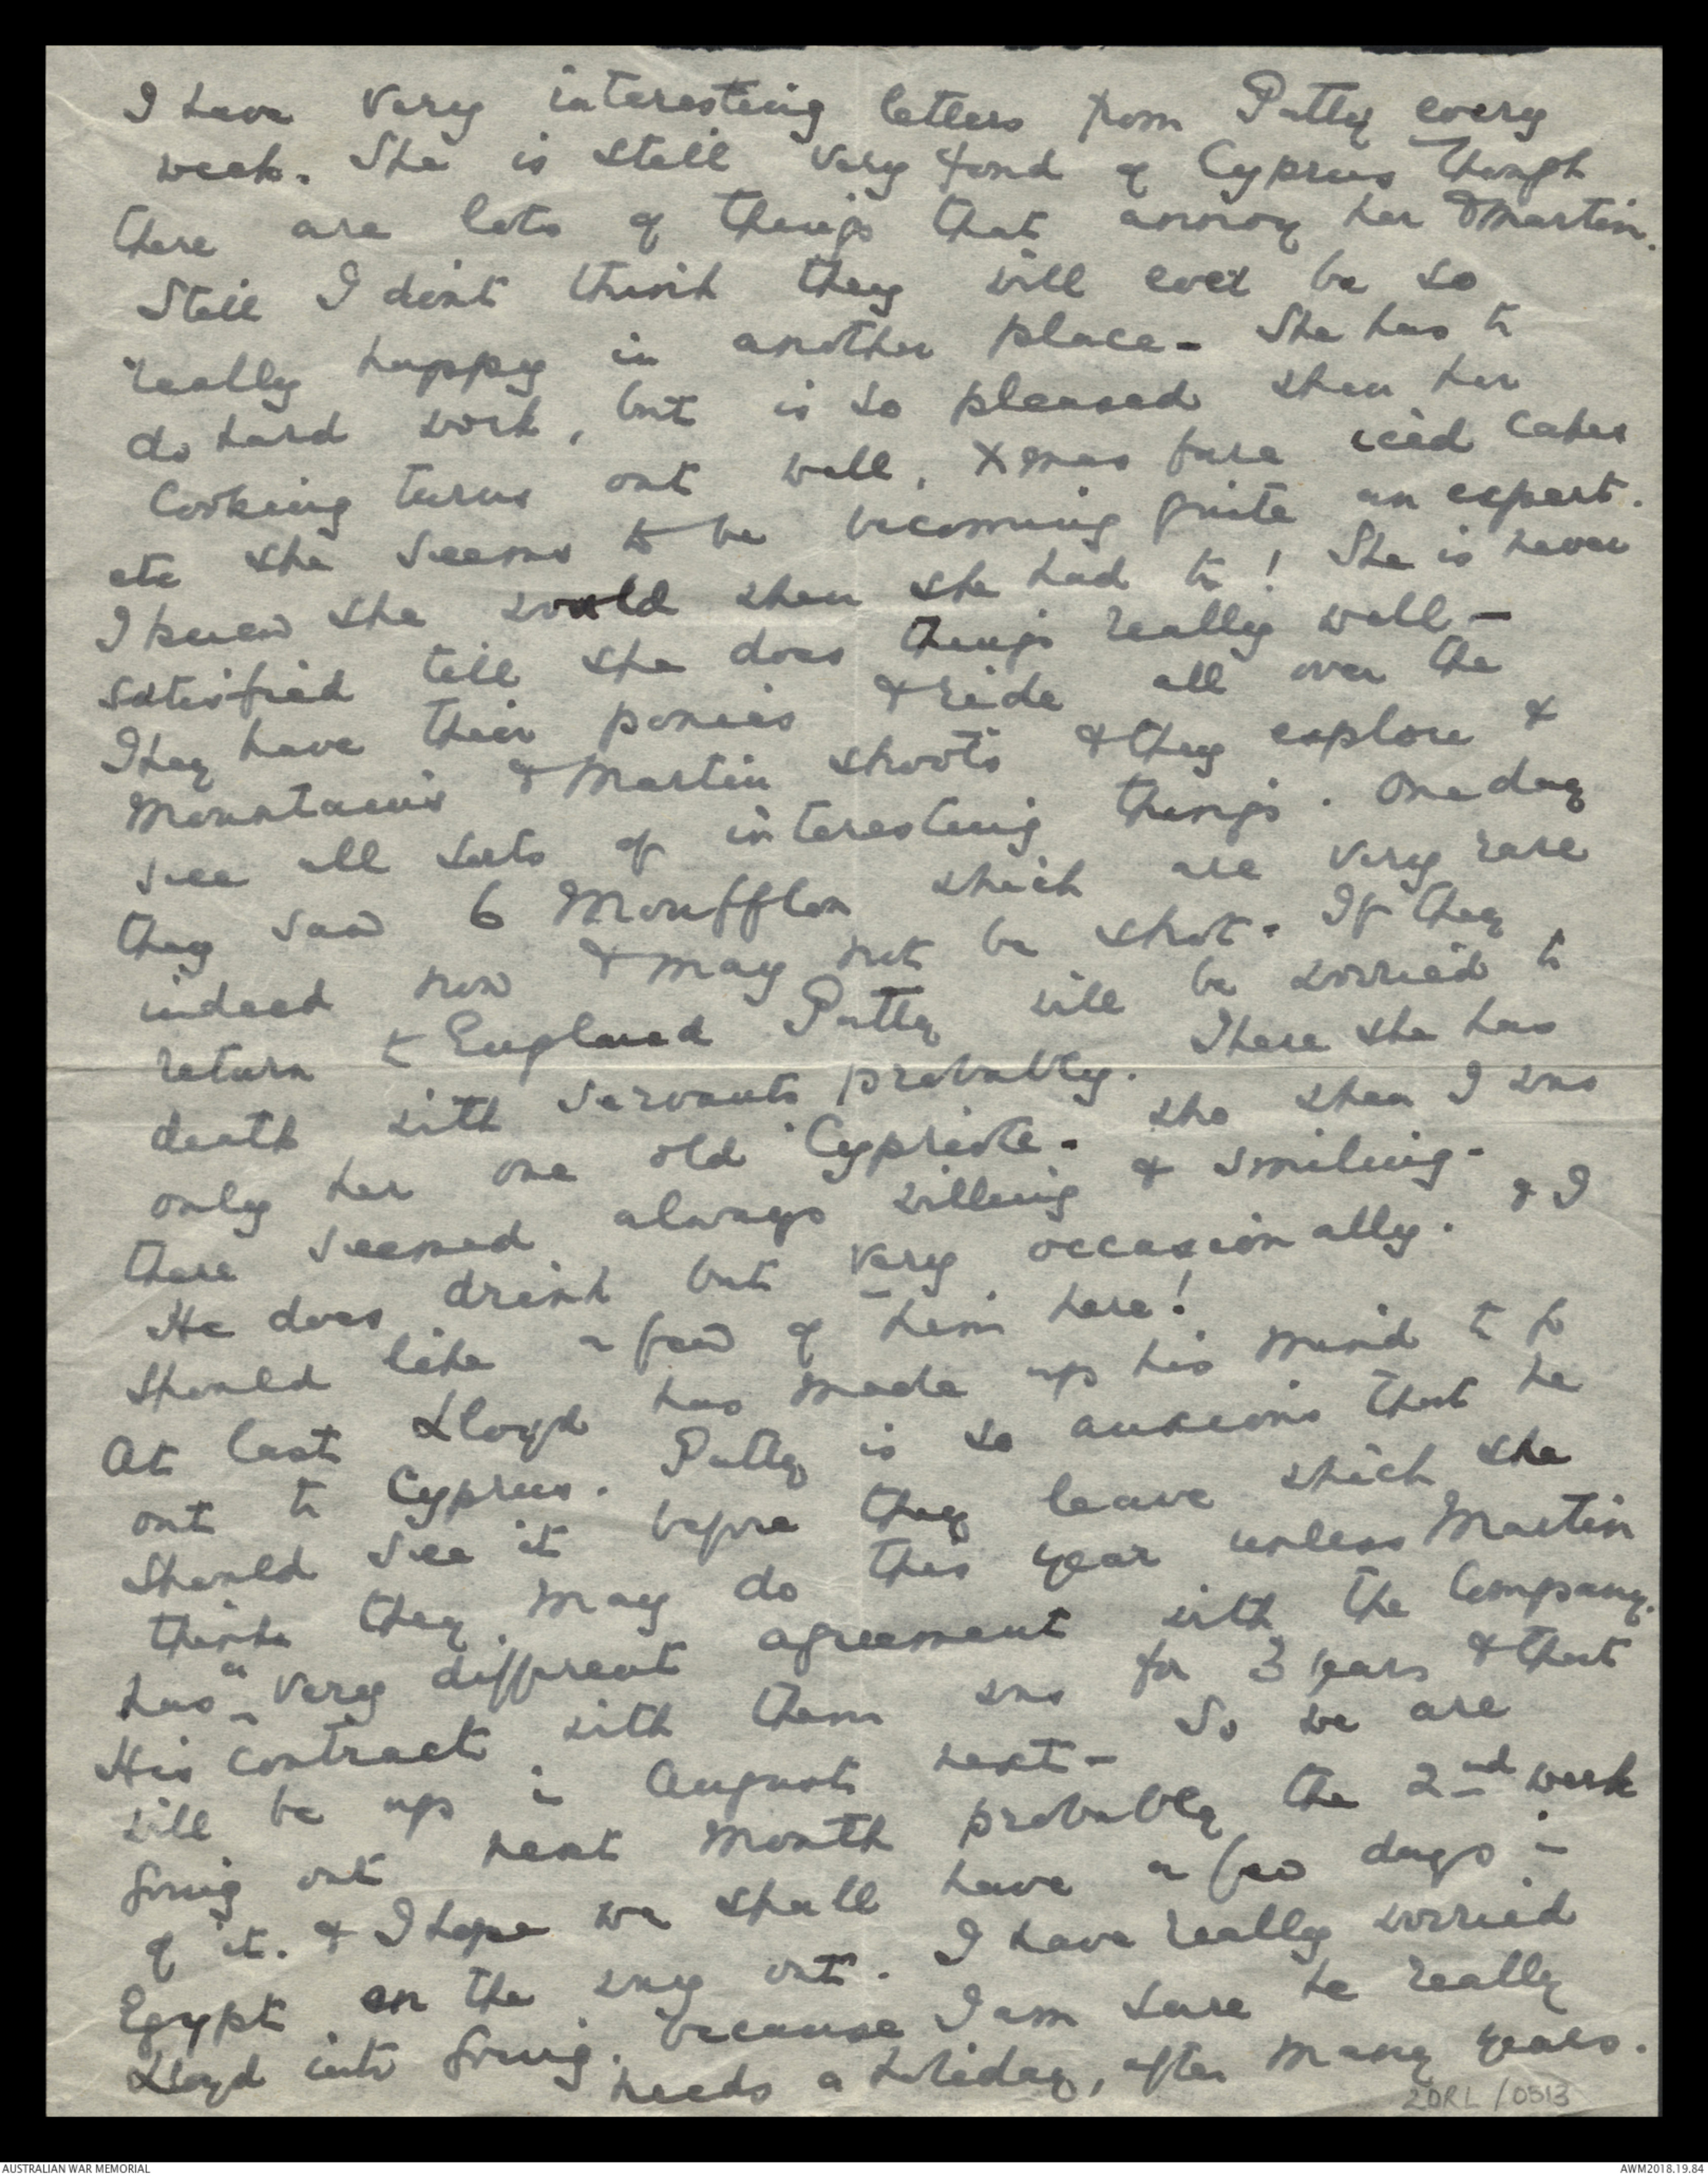 I have very interesting letters from Patty every
week. She is still very fond of Cyprus though
there are lots of things that annoy her & Martin.
Still I don't think they will ever be so
really happy in another place - She has to
do hard work, but is so pleased when her
Cooking turns out well, Xmas fare iced Cakes
etc she seems to be becoming quite an expert.
I knew she would when she had to! She is never
satisfied till she does things really well -
They have their ponies & ride all over the
Mountains & Martin shoots & they explore &
see all sorts of interesting things. One day
they saw 6 Moufflon which are very rare
indeed now & may not be shot. If they
return to England Patty will be worried to
death with servants probably. There she has
only her one old Cypriote - who when I was
there seemed always willing & smiling.
He does drink but very occasionally. & I
should like a few of him here!
At last Lloyd has made up his mind to go
out to Cyprus. Patty is so anxious that he
should see it before they leave which she
thinks they may do this year unless Martin
has a very different agreement with the Company.
His contract with them was for 3 years & that
will be up in August next - So we are
going out next Month probably the 2nd week
of it. & I hope we shall have a few days in
Egypt on the way out. I have really worried
Lloyd into going. because I am sure he really
needs a holiday, after many years.
2DRL/0513
AUSTRALIAN WAR MEMORIAL
AWM2018.19.84